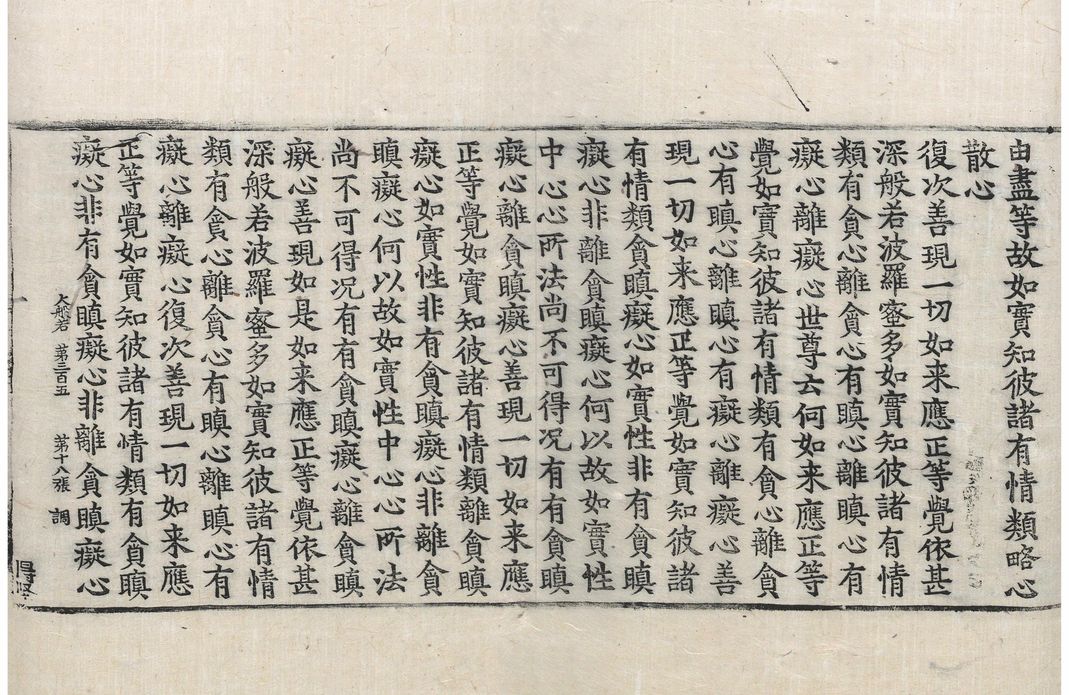 由盡等故如實知彼諸有情類略心
散心
復次善現一切如来應正等覺依甚
深般若波羅蜜多如實知彼諸有情
類有貪心離貪心有瞋心離瞋心有
癡心離癡心世尊云何如来應正等
覺如實知彼諸有情類有貪心離貪
心有瞋心離瞋心有癡心離癡心善
現一切如来應正等覺如實知彼諸
有情類貪瞋癡心如實性非有貪瞋
癡心非離貪瞋癡心何以故如實性
中心心所法尚不可得况有有貪瞋
癡心離貪瞋癡心善現一切如来應
正等覺如實知彼諸有情類離貪瞋
癡心如實性非有貪瞋癡心非離貪
瞋癡心何以故如實性中心心所法
尚不可得况有有貪瞋癡心離貪瞋
癡心善現如是如来應正等覺依甚
深般若波羅蜜多如實知彼諸有情
類有貪心離貪心有瞋心離瞋心有
癡心離癡心復次善現一切如来應
正等覺如實知彼諸有情類有貪瞋
癡心非有貪瞋癡心非離貪瞋癡心
大般若 苐三百五 苐十八張 調